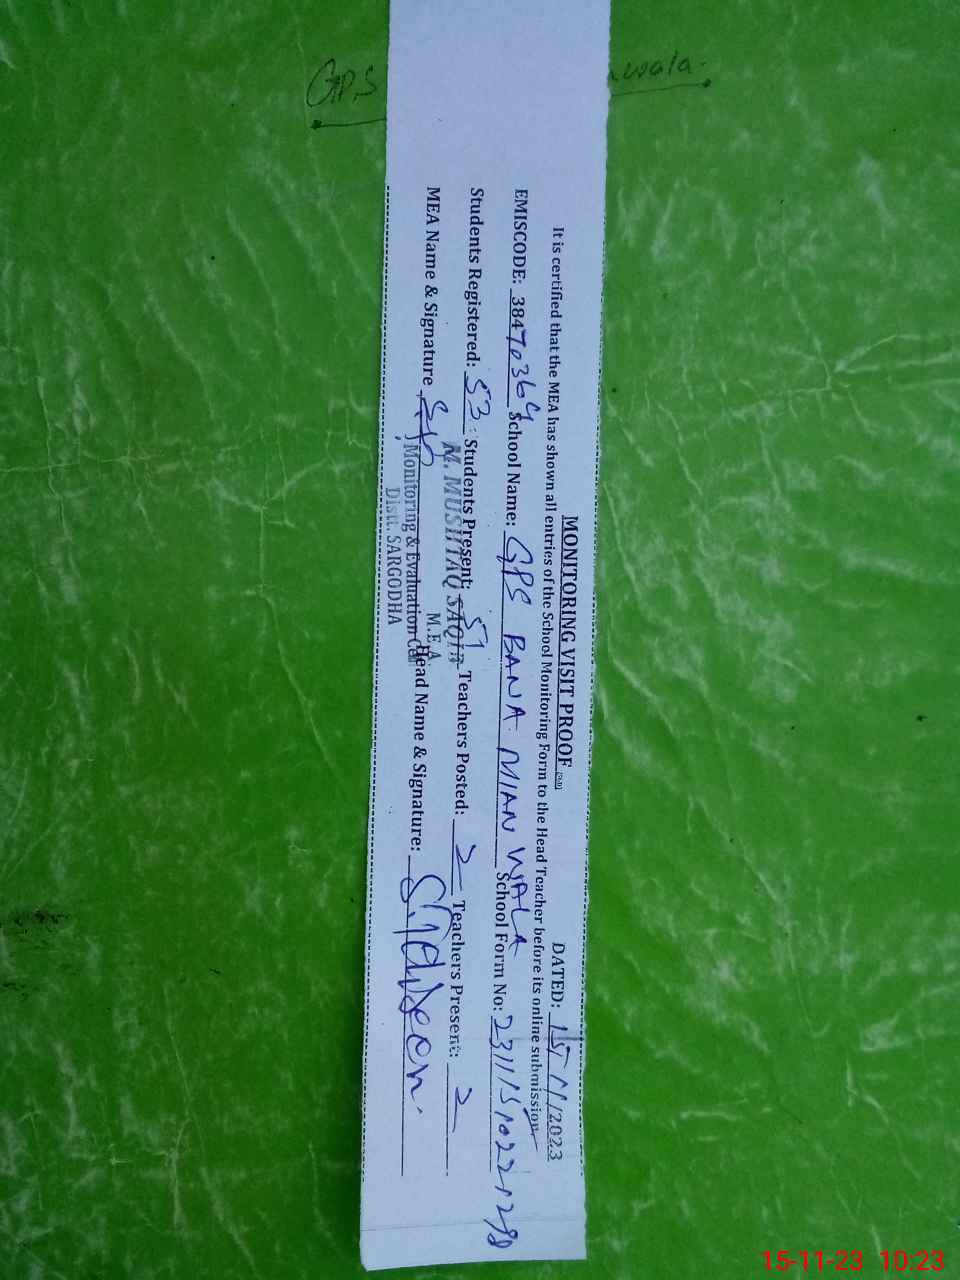 GPS wala.
MONITORING VISIT PROOF
DATED: 15/11/2023
It is certified that the MEA has shown all entries of the School Monitoring Form to the Head Teacher before its online submission
EMISCODE: 38470364 School Name: GPS BANA MIAN WALA School Form No: 
Students Registered: 53 Students Present: 51 Teachers Posted: 2 Teachers Present: 2
M. MUSHTAQ SAQIB
M.E.A
MEA Name & Signature Head Name & Signature:
Monitoring & Evaluation Cell
Distt. SARGODHA
15-11-23 10:23